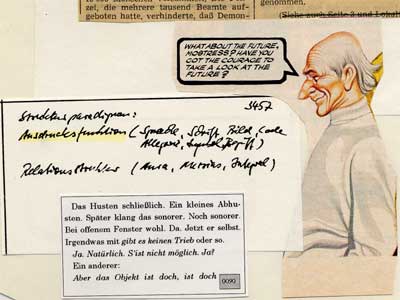 zei, die mehrere tausend Beamte auf-
geboten hatte, verhinderte, daß Demon-
genommen.
(Siehe auch Seite 3 und Lokal
WHAT ABOUT THE FUTURE,
MONSTRESS? HAVE YOU
GOT THE COURAGE TO
TAKE A LOOK AT THE
FUTURE?
3457
Strukturparadigmen:
Ausdrucksfunktion (Sprache, Schrift, Bild, Code
Allegorie, Symbol, Begriff)
Relationsstruktur (Aura, Integral)
Das Husten schließlich. Ein kleines Abhu-
sten. Später klang das sonorer. Noch sonorer.
Bei offenem Fenster wohl. Da. Jetzt er selbst.
Irgendwas mit gibt es keinen Trieb oder so.
Ja. Natürlich. S'ist nicht möglich. Ja?
Ein anderer:
Aber das Objekt ist doch, ist doch
0090